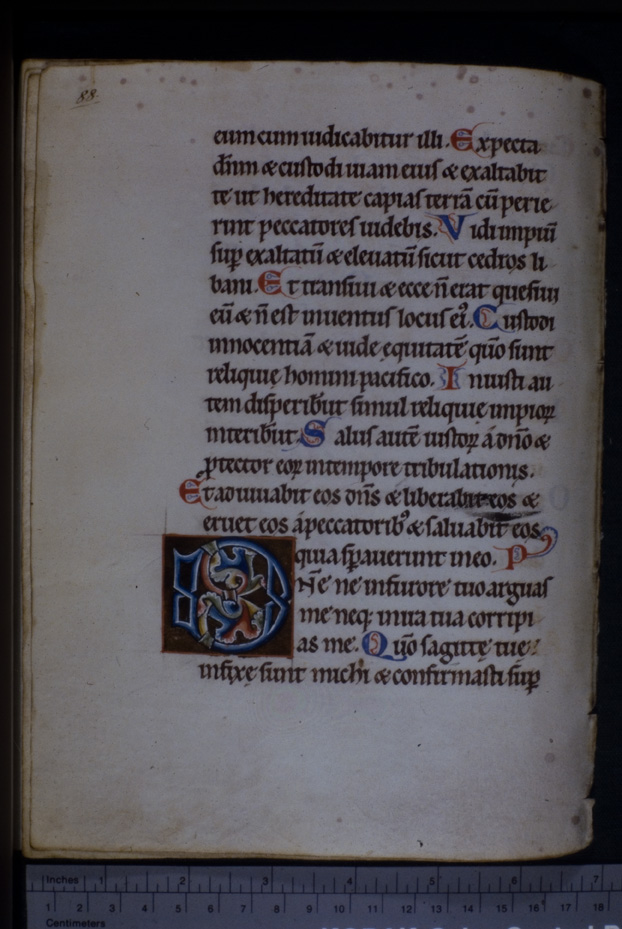 88.
eum cum iudicabitur illi. Expecta
dn̄m & custodi uiam eius & exaltabit
te ut hereditate capias terrā cū perie
rint peccatores uidebis. Vidi impiū
sup̄ exaltatū & eleuatū sicut cedros li
bani. Et transiui & ecce n̄ erat quesiui
eū & n̄ est inuentus locus eiꝰ. Custodi
innocentiā & uide equitatē quō sunt
reliquie homini pacifico. Iniusti au
tem disperib̄ut simul reliquie impioꝝ
interib̄ut. Salus autē iustoꝝ a dn̄o &
ꝓtector eoꝝ in tempore tribulationis.
Et adiuuabit eos dn̄s & liberabit eos &
eruet eos a peccatoribꝰ & saluabit eos
quia sp̄auerunt in eo. P
DN̄e ne in furore tuo arguas
me neq; in ira tua corripi
as me. Qūo sagitte tue
infixe sunt michi & confirmasti sup̄
Inches 1 2 3 4 5 6 7
1 2 3 4 5 6 7 8 9 10 11 12 13 14 15 16 17 18
Centimeters